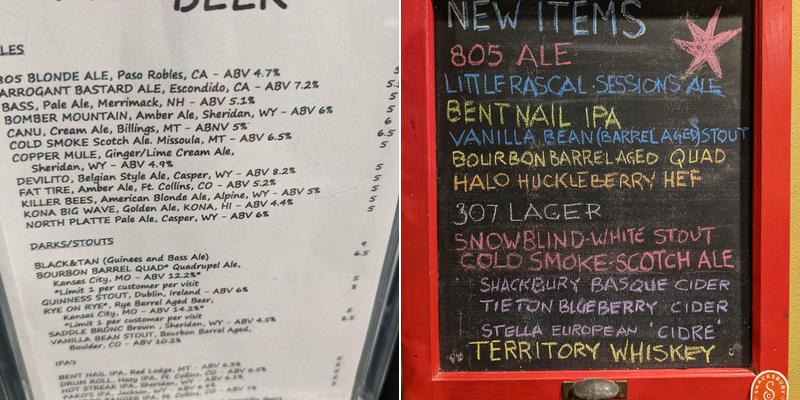 BEER
LES
805 BLONDE ALE, Paso Robles, CA - ABV 4.7%
ARROGANT BASTARD ALE, Escondido, CA - ABV 7.2%
BASS, Pale Ale, Merrimack, NH - ABV 5.1%
BOMBER MOUNTAIN, Amber Ale, Sheridan, WY - ABV 6%
CANU, Cream Ale, Billings, MT - ABNV 5%
COLD SMOKE Scotch Ale. Missoula, MT - ABV 6.5%
COPPER MULE, Ginger/Lime Cream Ale,
Sheridan, WY - ABV 4.9%
DEVILITO, Belgian Style Ale, Casper, WY - ABV 8.2%
FAT TIRE, Amber Ale, Ft. Collins, CO - ABV 5.2%
KILLER BEES, American Blonde Ale, Alpine, WY - ABV 5%
KONA BIG WAVE, Golden Ale, KONA, HI - ABV 4.4%
NORTH PLATTE Pale Ale, Casper, WY - ABV 6%
5
5.5
5
6
5
6.5
5
5
5
5
5
DARKS/STOUTS
BLACK&TAN (Guinees and Bass Ale)
BOURBON BARREL QUAD* Quadrupel Ale,
Kansas City, MO - ABV 12.2%*
*Limit 1 per customer per visit
GUINNESS STOUT, Dublin, Ireland - ABV 6%
RYE ON RYE*, Rye Barrel Aged Beer,
Kansas City, MO - ABV 14.2%*
*Limit 1 per customer per visit
SADDLE BRONC Brown, Sheridan, WY - ABV 4.5%
VANILLA BEAN STOUT, Bourbon Barrel Aged,
Boulder, CO - ABV 10.2%
IPA's
BENT NAIL IPA, Red Lodge, MT - ABV 6.3%
DRUM ROLL, Hazy IPA, Ft. Collins, CO
HOT STREAK IPA, Sheridan, WY
PAKO'S IPA, Jackson, WY
NEW ITEMS
805 ALE
LITTLE RASCAL-SESSIONS ALE
BENT NAIL IPA
VANILLA BEAN (BARREL AGED) STOUT
BOURBON BARREL AGED QUAD
HALO HUCKLEBERRY HEF
307 LAGER
SNOWBLIND-WHITE STOUT
COLD SMOKE-SCOTCH ALE
SHACKBURY BASQUE CIDER
TIETON BLUEBERRY CIDER
STELLA EUROPEAN 'CIDRE'
TERRITORY WHISKEY
SHACKSBURY